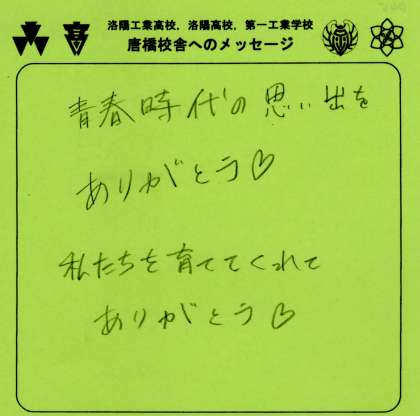 洛陽工業高校，洛陽高校，第一工業学校
唐橋校舎へのメッセージ
高
青春時代の思い出を
ありがとう♡
私たちを育ててくれて
ありがとう♡